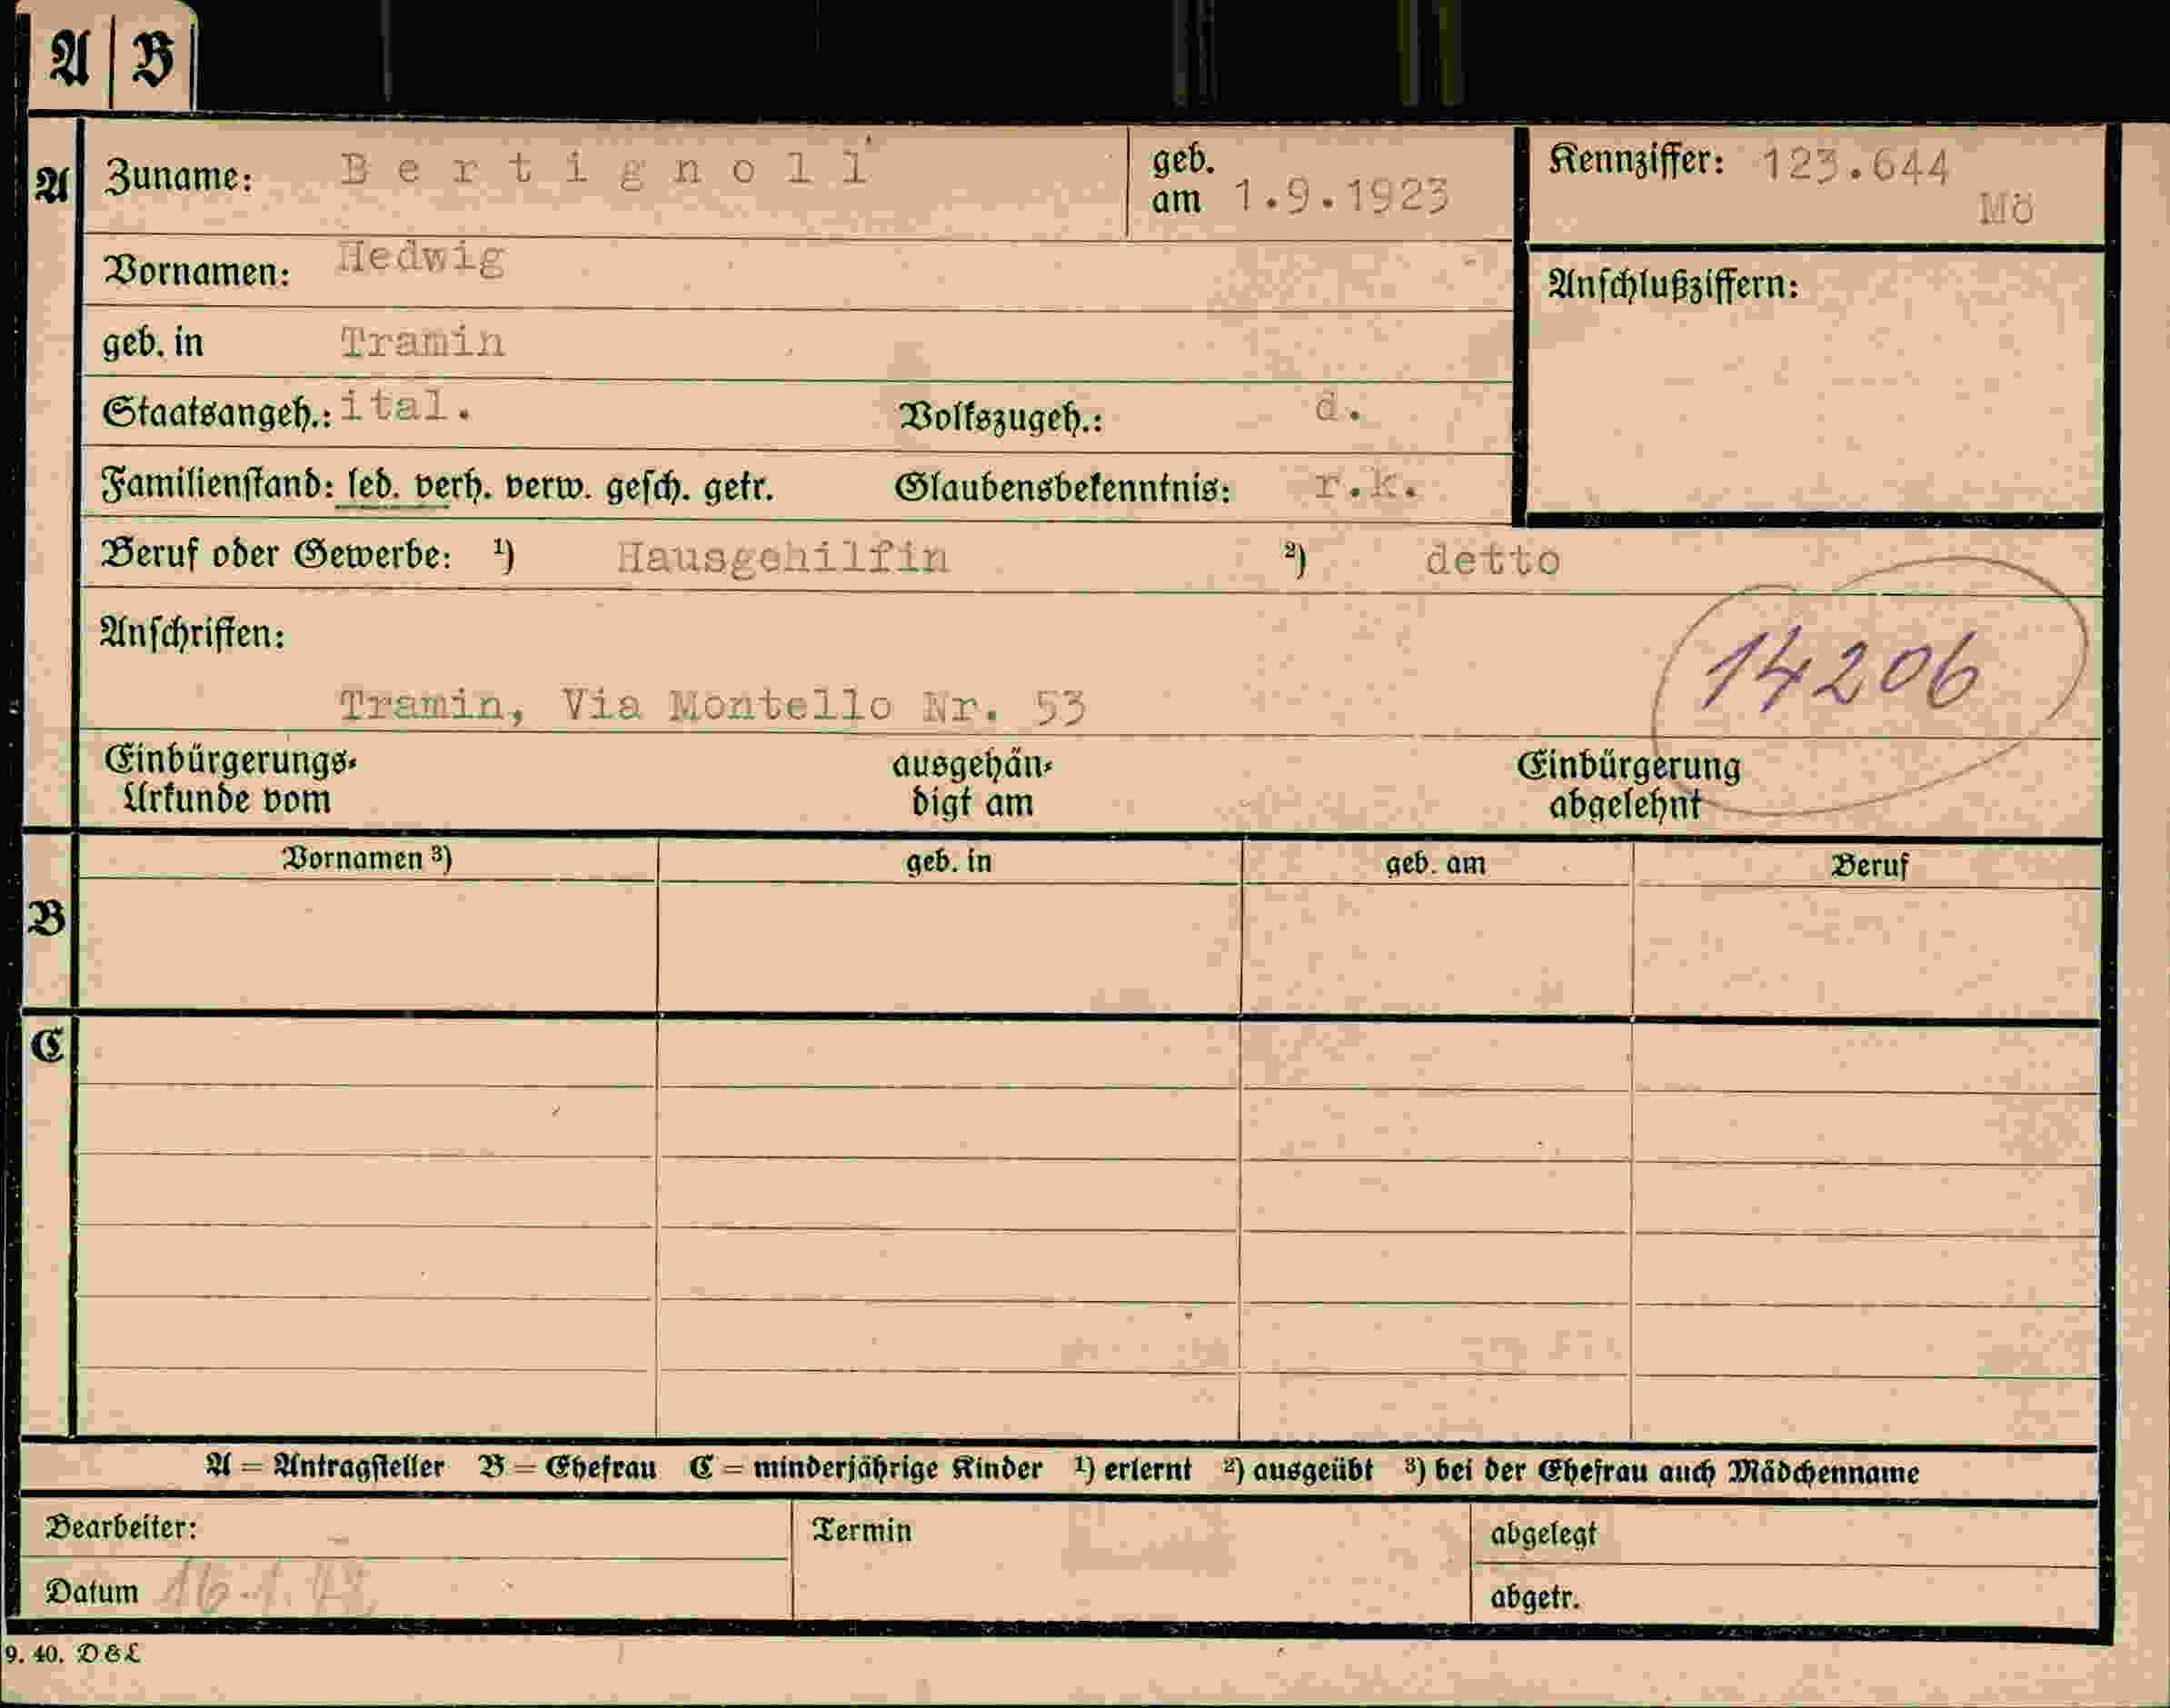 A B
A Zuname: Bertignoll geb. am 1.9.1923 Kennziffer: 123.644
Mö
Vornamen: Hedwig
Anschlußziffern:
geb. in Tramin
Staatsangeh.: ital. Volkszugeh.: d.
Familienstand: led. verh. verw. gesch. getr. Glaubensbekenntnis: r.k.
Beruf oder Gewerbe: ¹) Hausgehilfin ²) detto
Anschriften:
14206
Tramin, Via Montello Nr. 53
Einbürgerungs- ausgehän- Einbürgerung
Urkunde vom digt am abgelehnt
Vornamen ³) geb. in geb. am Beruf
B
C
A = Antragsteller B = Ehefrau C = minderjährige Kinder ¹) erlernt ²) ausgeübt ³) bei der Ehefrau auch Mädchenname
Bearbeiter: Termin abgelegt
Datum 16.1. abgetr.
9. 40. D&L